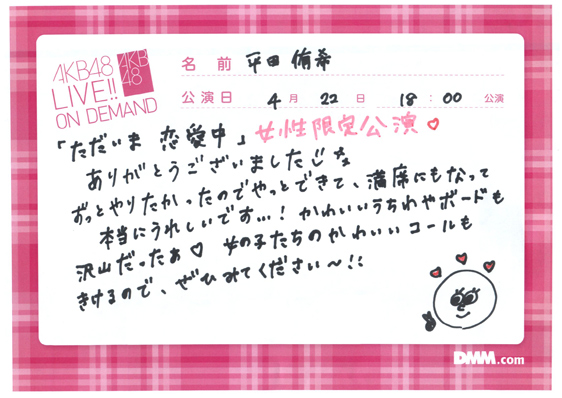 AKB48
LIVE!!
ON DEMAND
AKB
48
名前 平田 侑希
公演日 4月 22日 18:00 公演
「ただいま 恋愛中」女性限定公演
ありがとうございました
ずっとやりたかったのでやっとできて、満席にもなって
本当にうれしいです…! かわいいうちわやボードも
沢山だったぁ♡ 女の子たちのかわいいコールも
きけるので、ぜひみてください〜!!
DMM.com